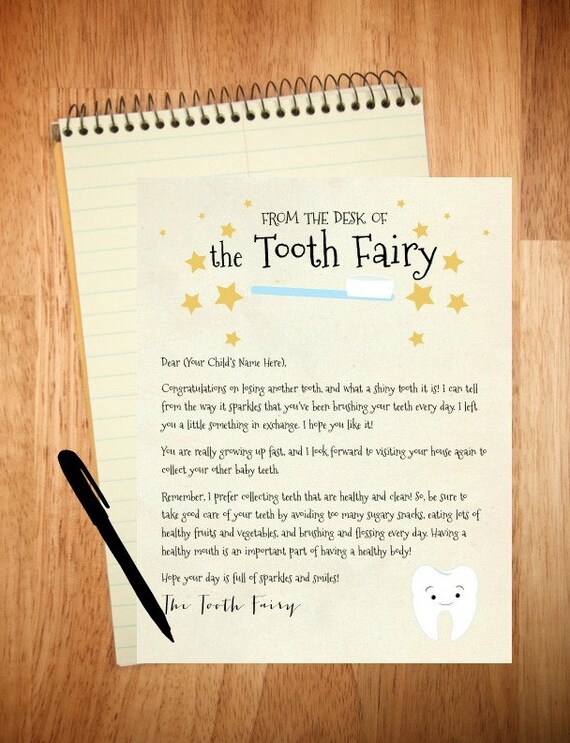 FROM THE DESK OF
the Tooth Fairy
Dear (Your Child's Name Here),
Congratulations on losing another tooth, and what a shiny tooth it is! I can tell
from the way it sparkles that you've been brushing your teeth every day. I left
you a little something in exchange. I hope you like it!
You are really growing up fast, and I look forward to visiting your house again to
collect your other baby teeth.
Remember, I prefer collecting teeth that are healthy and clean! So, be sure to
take good care of your teeth by avoiding too many sugary snacks, eating lots of
healthy fruits and vegetables, and brushing and flossing every day. Having a
healthy mouth is an important part of having a healthy body!
Hope your day is full of sparkles and smiles!
The Tooth Fairy